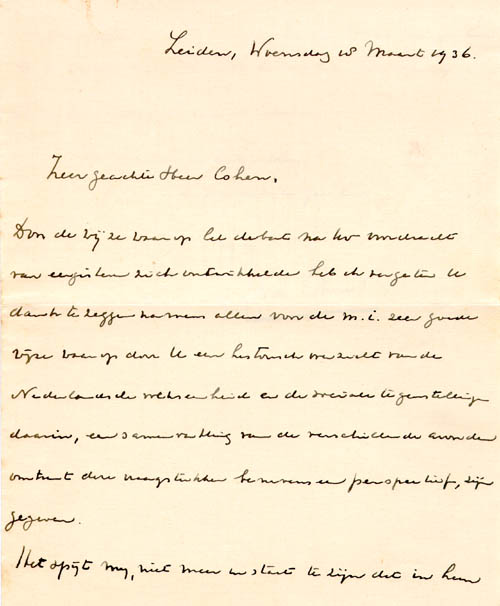 Leiden, Woensdag 18 Maart 1936.
Zeer geachte Heer Cohen,
Door de wijze waarop het debat na Uw voordracht
van eergisteren zich ontwikkelde heb ik vergeten U
dank te zeggen namens allen voor de m.i. zeer goede
wijze waarop door U een historisch overzicht van de
Nederlandsche volkseenheid en de sociale tegenstellingen
daarin, een samenvatting van de verschillende avonden
omtrent deze vraagstukken benevens een perspectief, zijn
gegeven.
Het spijt mij, niet meer in staat te zijn dit in hun